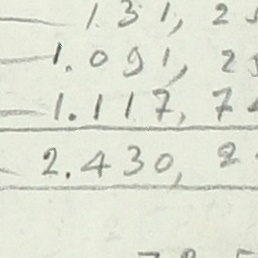 131, 2
1.091, 2
1.117, 7
2.430, 2